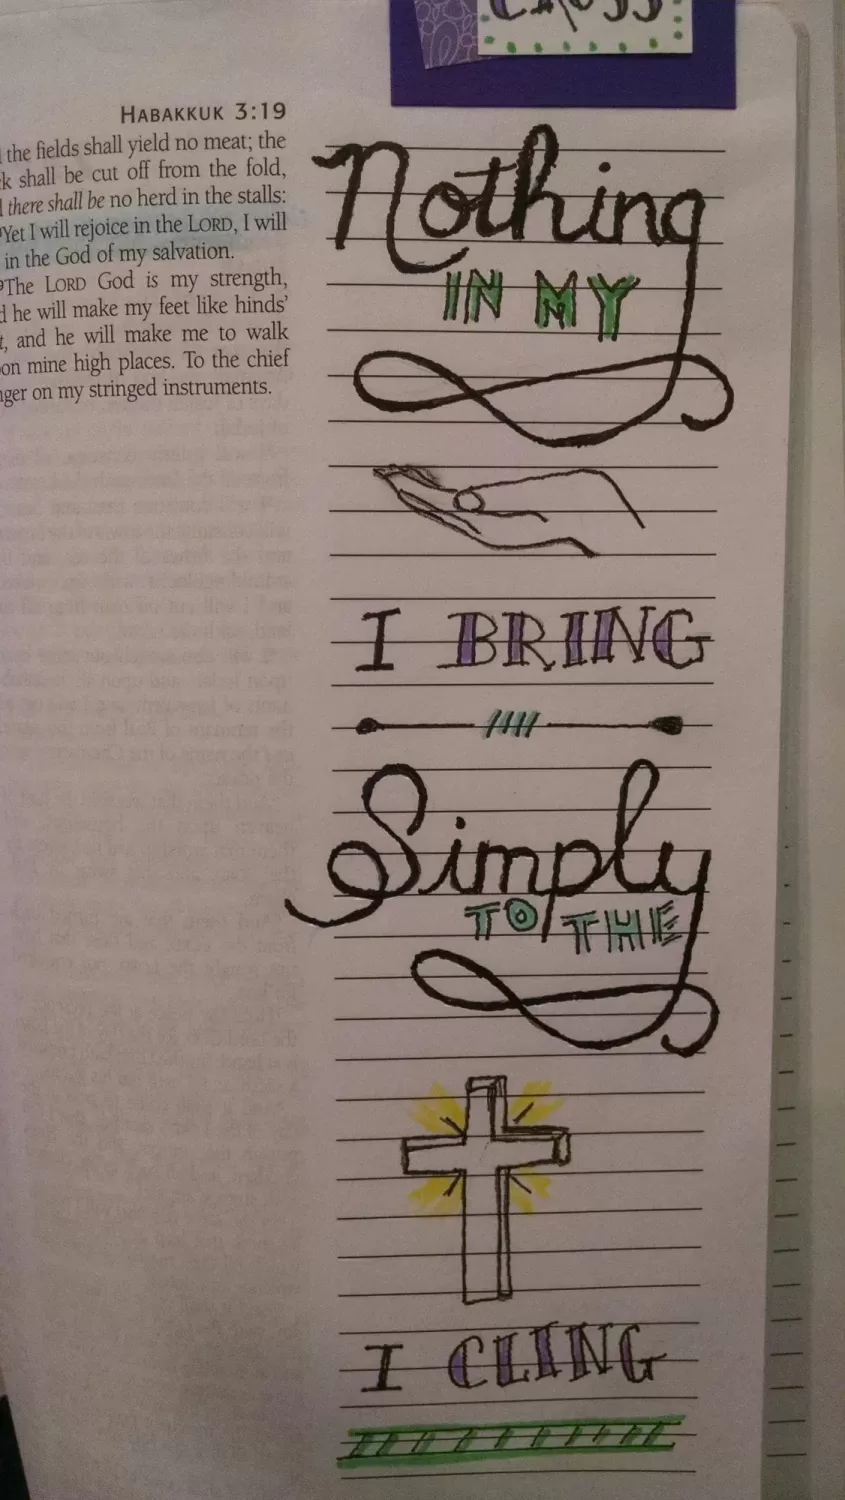 CROSS
HABAKKUK 3:19
the fields shall yield no meat; the
shall be cut off from the fold,
there shall be no herd in the stalls:
Yet I will rejoice in the LORD, I will
in the God of my salvation.
The LORD God is my strength,
he will make my feet like hinds'
and he will make me to walk
mine high places. To the chief
on my stringed instruments.
Nothing
IN MY
I BRING
Simply
TO THE
I CLING